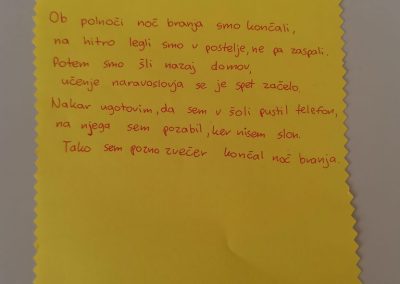 Ob polnoči noč branja smo končali,
na hitro legli smo v postelje, ne pa zaspali.
Potem smo šli nazaj domov,
učenje naravoslovja se je spet začelo.
Nakar ugotovim, da sem v šoli pustil telefon,
na njega sem pozabil, ker nisem slon.
Tako sem pozno zvečer končal noč branja.